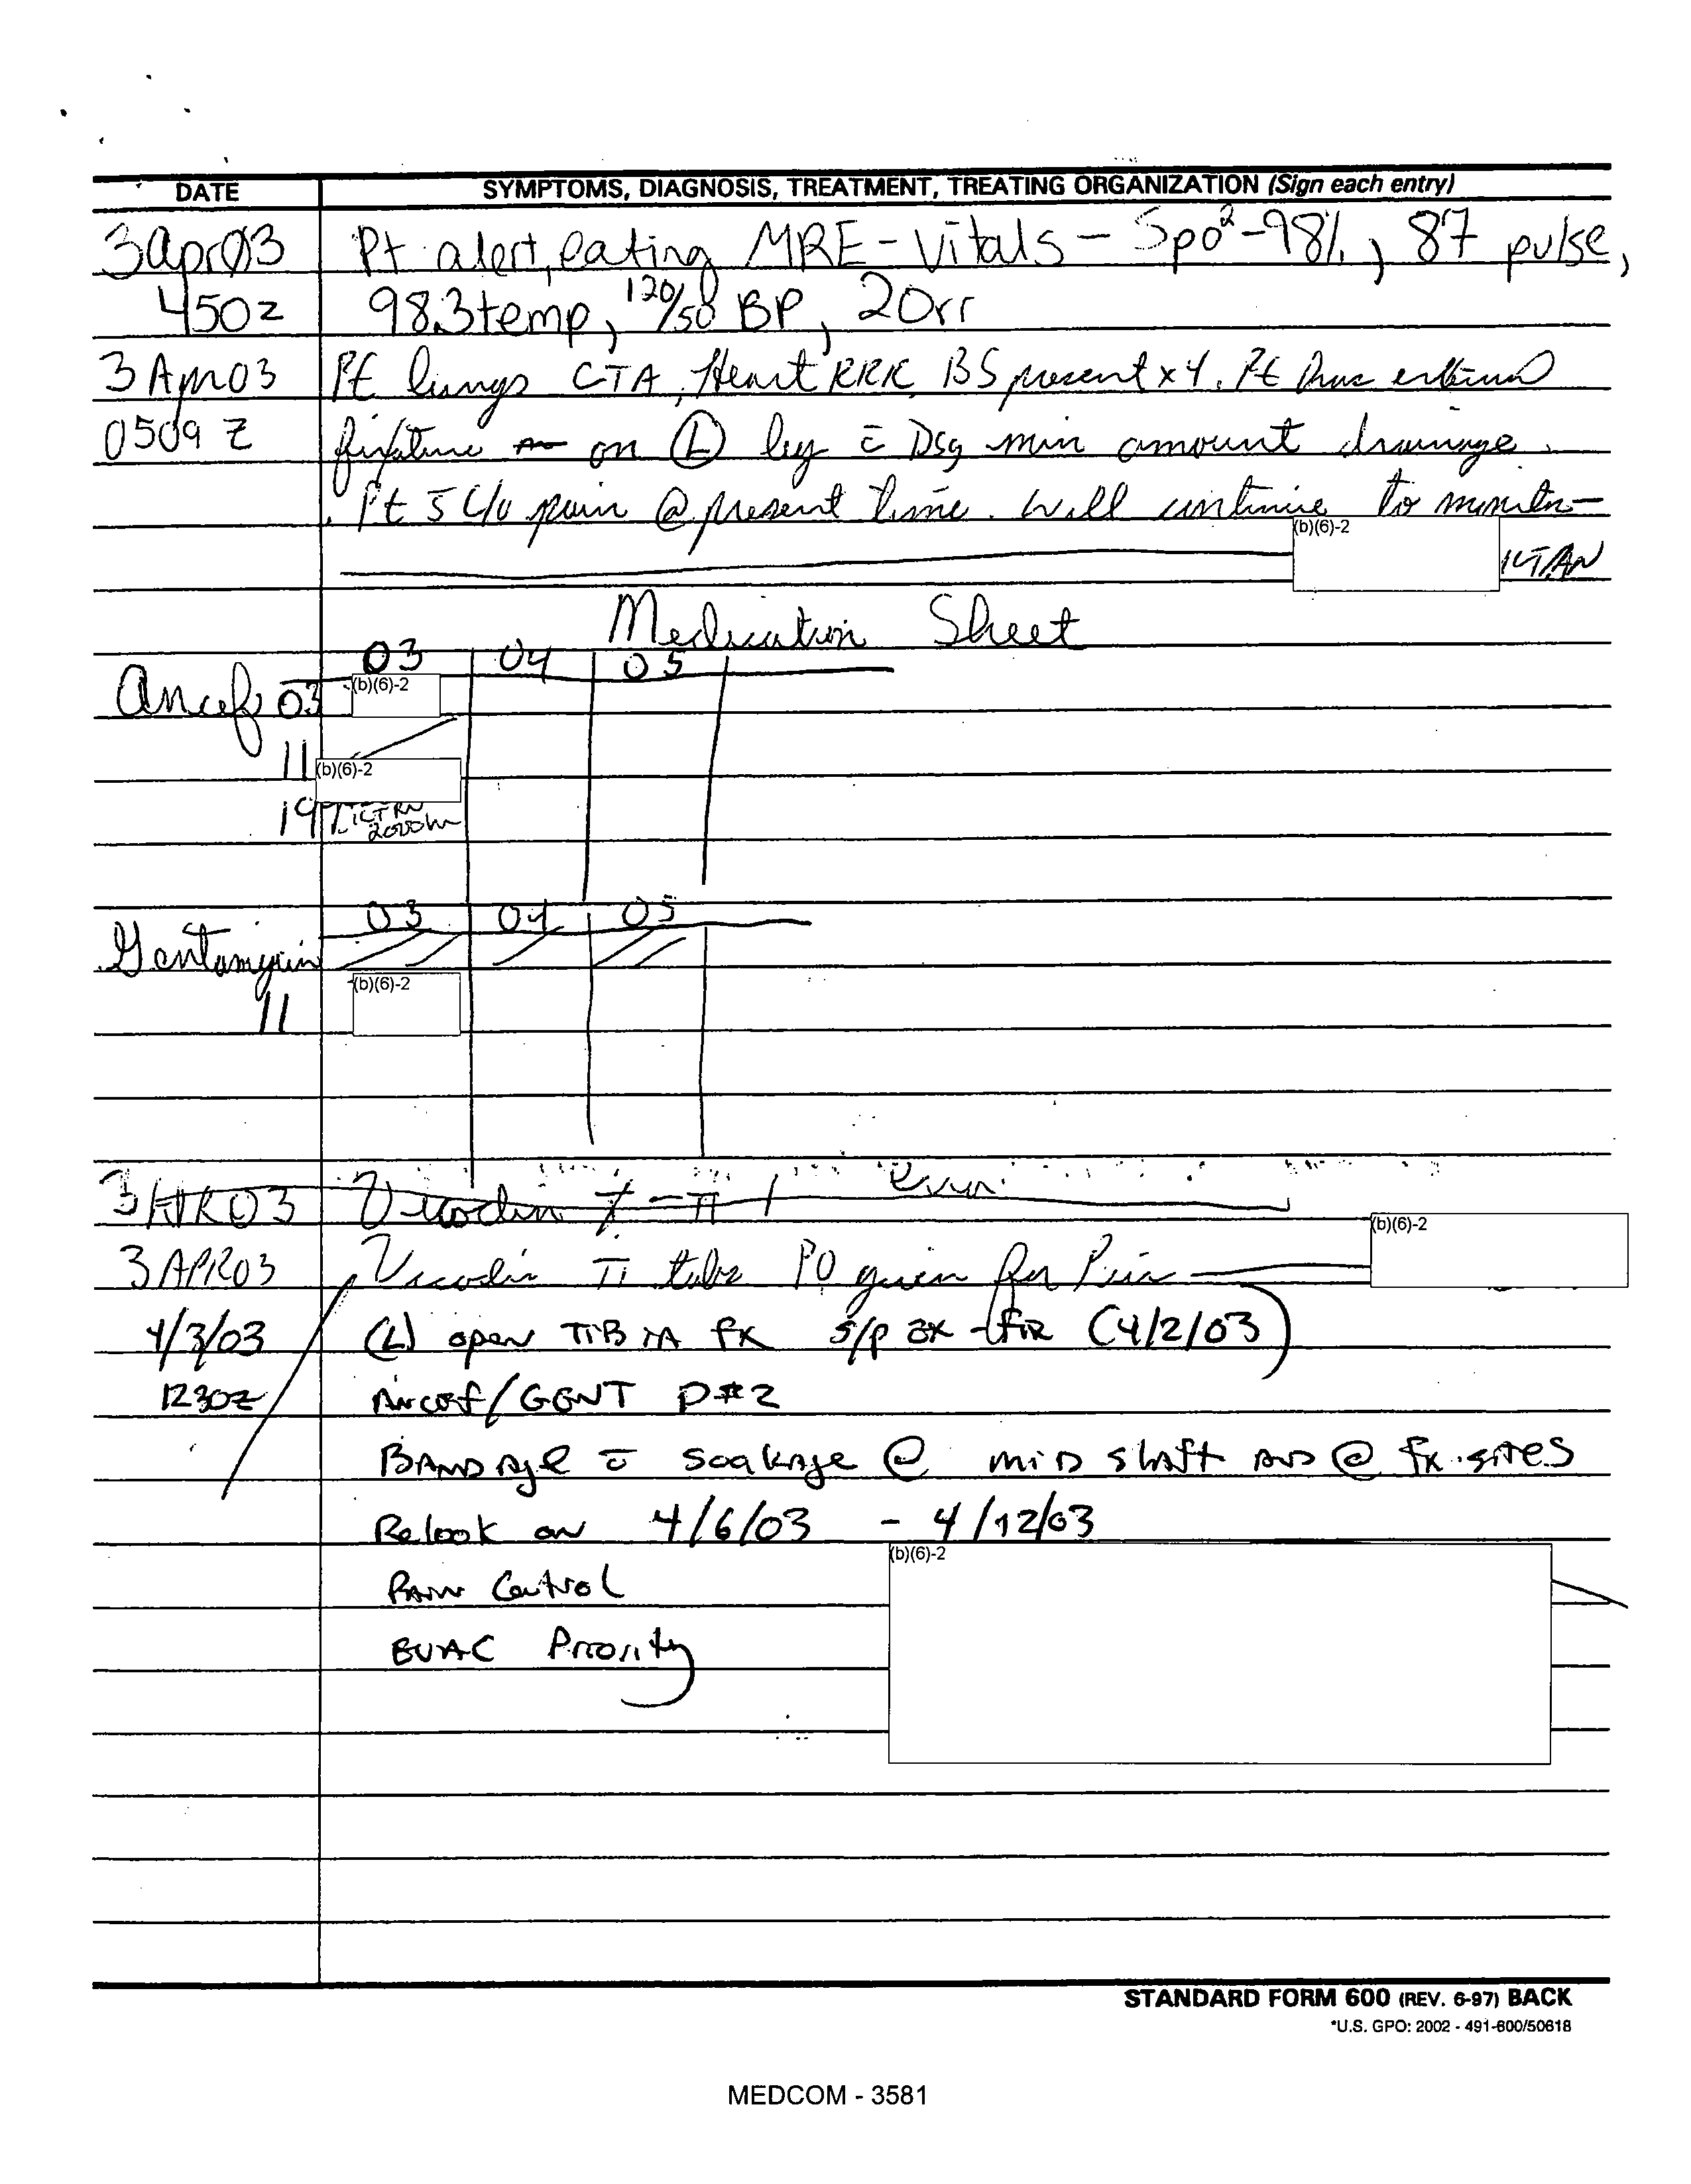 DATE SYMPTOMS, DIAGNOSIS, TREATMENT, TREATING ORGANIZATION (Sign each entry)
3apr03 Pt alert, eating MRE - Vitals - Spo2-98%, 87 pulse,
450z 98.3temp, 120/50 BP, 20rr
3 Apr 03 Pt lungs CTA, Heart RRR BS present x 4. Pt has external
0509 Z on (L) leg c̄ Dsg min amount drainage.
Pt s̄ c/o pain @ present time. Will continue to monitor-
(b)(6)-2
Medication Sheet
03 04 05
Ancef 03 (b)(6)-2
11 (b)(6)-2
19 2000hr
03 04 05
Gentamycin
11 (b)(6)-2
3APR03 Vicodin
(b)(6)-2
3APR03 Vicodin II tabs PO given for Pain
4/3/03 (L) open TIBIA FX S/P EX-FIX (4/2/03)
1230z Ancef/GENT D#2
BANDAGE c̄ soakage @ MID shaft AND @ fx sites
Relook on 4/6/03 - 4/12/03
(b)(6)-2
PAIN Control
EVAC Priority
STANDARD FORM 600 (REV. 6-97) BACK
*U.S. GPO: 2002 - 491-600/50618
MEDCOM - 3581